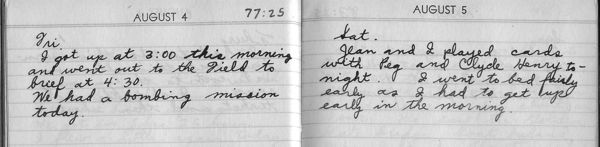 AUGUST 4
77:25
Fri.
I got up at 3:00 this morning
and went out to the Field to
brief at 4:30.
We had a bombing mission
today.
AUGUST 5
Sat.
Jean and I played cards
with Peg and Clyde Henry to-
night. I went to bed fairly
early as I had to get up
early in the morning.